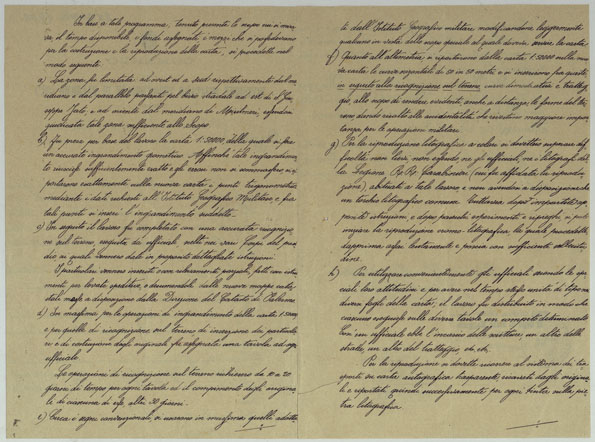 In base a tale programma, tenuto presente lo scopo cui mira-
va, il tempo disponibile e fondo assegnato, i mezzi che si possedevano
per la costruzione e la riproduzione della carta, si procedette nel
modo seguente:
a) La zona fu limitata ad ovest ed a sud rispettivamente dal me-
ridiano e dal parallelo passanti
giudicata tale zona sufficiente allo scopo
b) Si prese per base del lavoro la carta 1:50000, della quale si fece
un accurato ingrandimento geometrico. Affinché tale ingrandimen-
to riuscisse sufficientemente esatto e gli errori non si
portarono esattamente sulla nuova carta i punti trigonometrici
mediante i dati richiesti all'Istituto Geografico Militare e fra
tali punti si inserì l'ingrandimento suddetto.
c) In seguito il lavoro fu completato con una accurata ricogni-
zione sul terreno, eseguita da ufficiali
dio ai quali vennero date in proposito dettagliate istruzioni.
I particolari vennero inseriti con
menti per
a disposizione dalla Direzione del Catasto di Palermo.
d) In massima per le operazioni di ingrandimento della carta 1:50000
e per quelle di ricognizione sul terreno, di inserzione dei particola-
ri e di costruzione degli originali fu assegnata una tavola ad ogni
ufficiale
Le operazioni di ricognizione sul terreno richiesero da 10 a 20
giorni di tempo per ogni tavola ed il compimento degli origina-
li di ciascuna di esse altri 30 giorni.
e) Circa i segni convenzionali, si usarono in massima quelli adotta-
ti dall'Istituto Geografico militare modificandone leggermente
qualcuno in vista dello scopo speciale al quale doveva servire la carta.
f) Quanto all'altimetria, si riportarono dalla carta 1:50000 sulla nuo-
va carta le curve orizzontali di 50 in 50 metri e si inserirono fra queste,
in seguito alla ricognizione sul terreno, curve dimostrative e tratteg-
gio, allo scopo di rendere evidenti, anche a distanza, le forme del ter-
reno dando risalto alle accidentalità che rivestono maggiore impor-
tanza per le operazioni militari.
g) Per la riproduzione litografica a colori si dovettero superare dif-
ficoltà non lievi, non essendo, nè gli ufficiali, nè i litografi del-
la Legione RR. Carabinieri (cui fu affidata la riprodu-
zione), abituati a tale lavoro, e non avendosi a disposizione che
un torchio litografico comune. Tuttavia dopo impartite ap-
posite istruzioni e dopo parecchi esperimenti e ripieghi, si potè
iniziare la riproduzione cromo-litografica, la quale procedette
dapprima assai lentamente e poscia con sufficiente
h) Per utilizzare convenientemente gli ufficiali secondo le spe-
ciali loro attitudini e per avere nel tempo stesso unità di tipo nei
diversi fogli della carta, il lavoro fu distribuito in modo che
ciascuno eseguisse sulle diverse tavole un compito determinato.
Così un ufficiale ebbe l'incarico delle scritture, un altro delle
strade, un altro del tratteggio, etc. etc.
Per la riproduzione si dovette ricorrere al sistema dei
su carta autografica trasparente, ricavati dagli origina-
li e riportati quindi successivamente, per ogni tinta, sulla pie-
tra litografica.